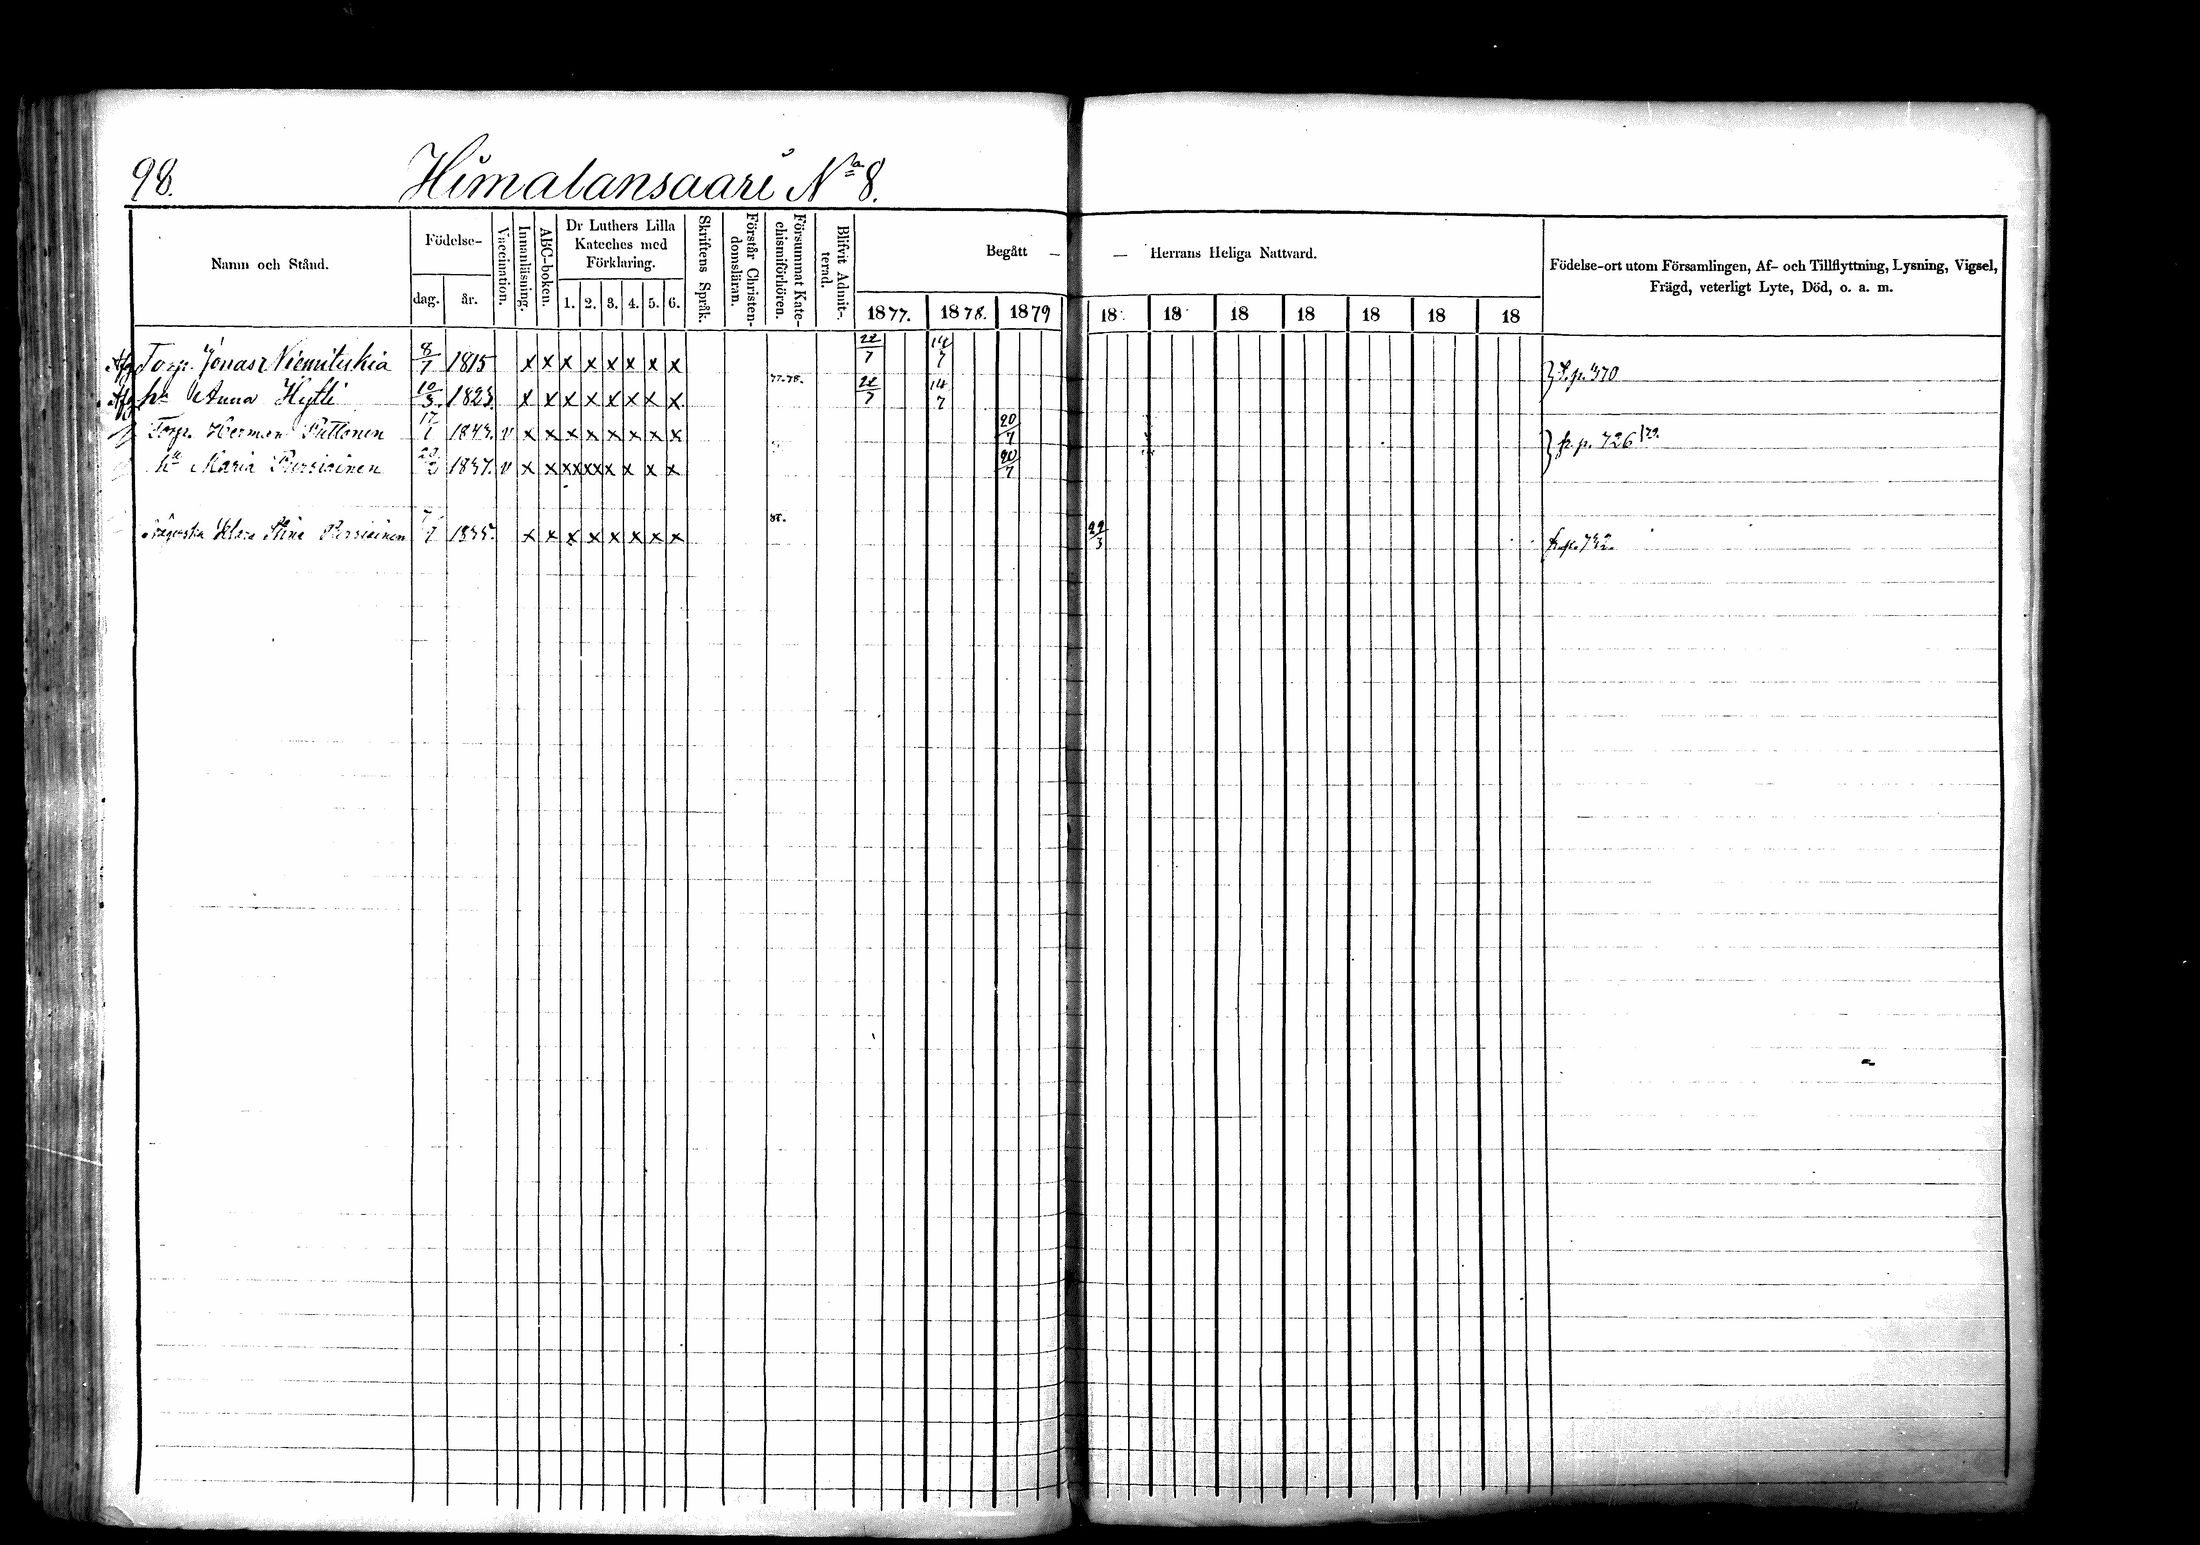 98. Himalansaari No 8.
Namn och Stånd.
Födelse-
dag. år.
Vaccination.
Innanläsning.
ABC-boken.
Dr Luthers Lilla
Kateches med
Förklaring.
1. 2. 3. 4. 5. 6.
Skriftens Språk.
Förstår Christen-
domsläran.
Försummat Kate-
chismiförhören.
Blifvit Admit-
terad.
Begått — — Herrans Heliga Nattvard.
1877. 1878. 1879 18 18 18 18 18 18 18
Födelse-ort utom Församlingen, Af- och Tillflyttning, Lysning, Vigsel,
Frägd, veterligt Lyte, Död, o. a. m.
Torp. Jonas Niemitukia 8/7 1815 x x x x x x x x 22/7 14/7 } S. p. 370
h. Anna Hytti 10/3 1823. x x x x x x x x 77.78. 22/7 14/7
Torp. Herman Puttonen 17/1 1843. v x x x x x x x x 20/7 } fr. p. 726/79.
hu Maria Pursiainen 1837. v x x xx xx x x x x 20/7
Klara Stina Pursiainen 1835. x x x x x x x x 22/3 fr. p. 742.